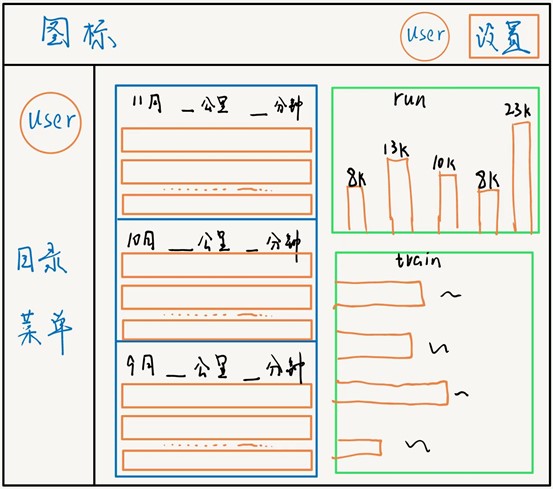 图标
User
设置
User
目录
菜单
11月 _公里 _分钟
10月 _公里 _分钟
9月 _公里 _分钟
run
8K
13K
10K
8K
23K
train